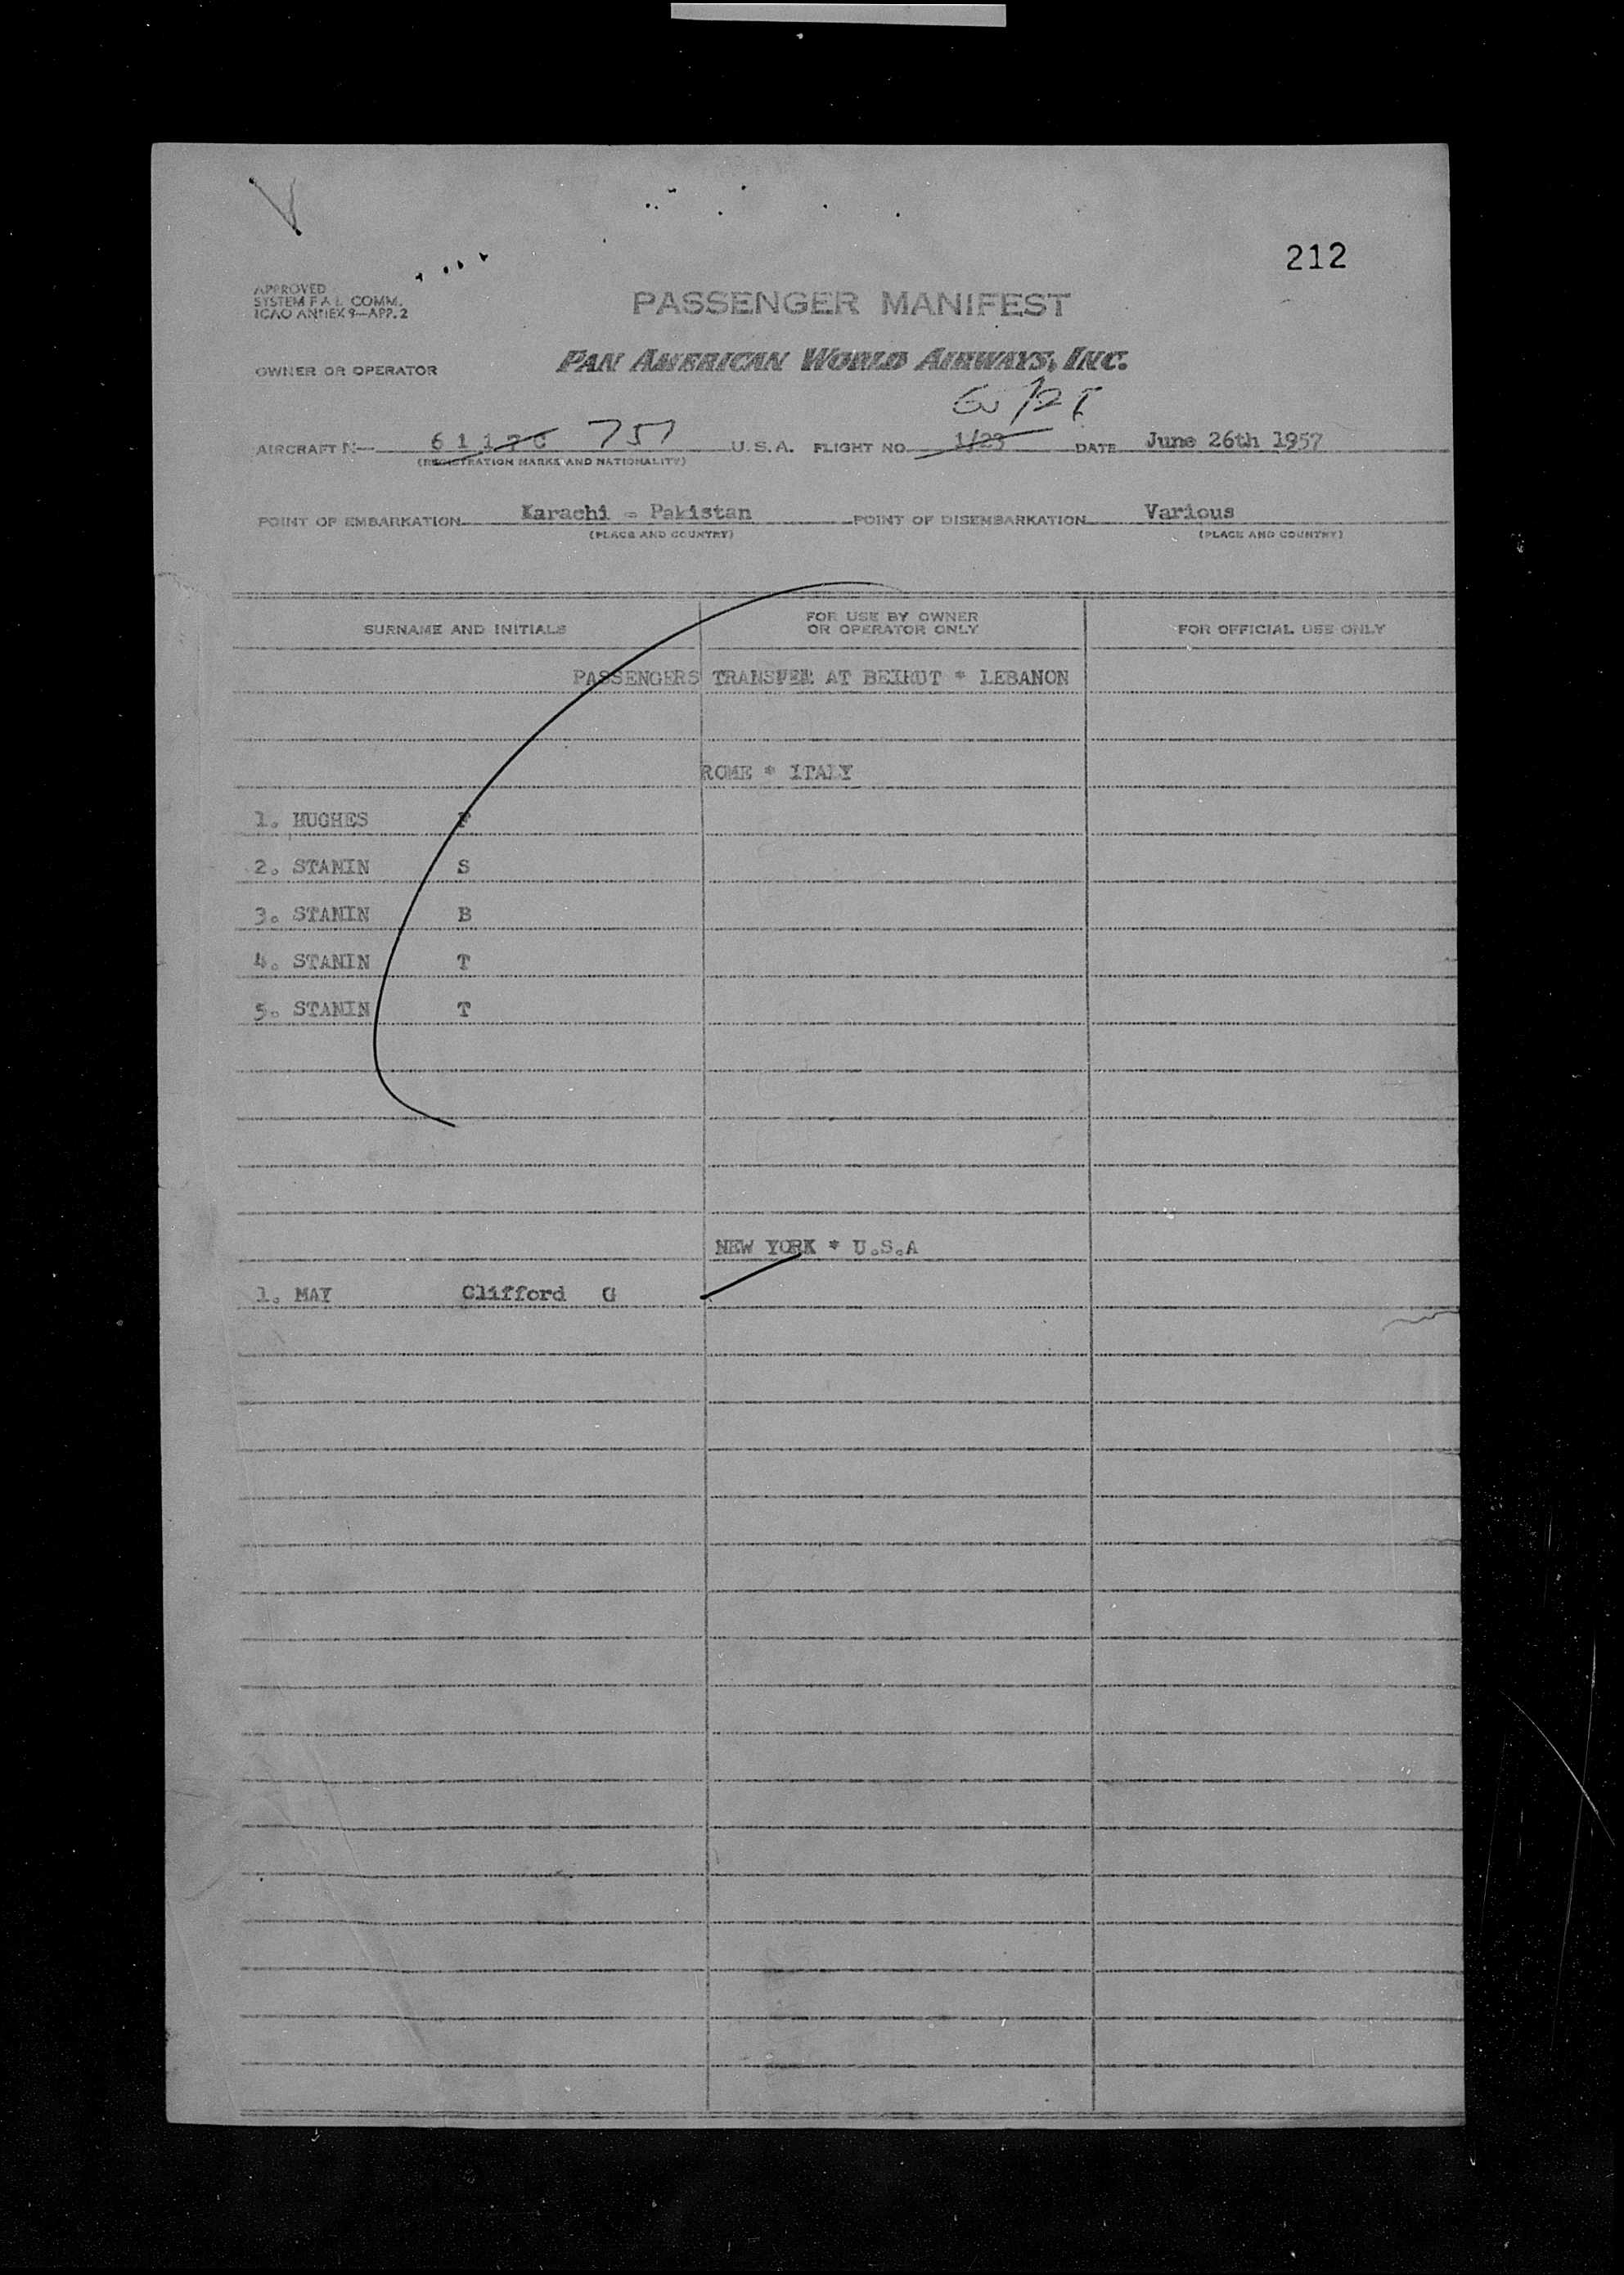 212
APPROVED
SYSTEM F A L COMM.
ICAO ANNEX 9—APP. 2
PASSENGER MANIFEST
OWNER OR OPERATOR PAN AMERICAN WORLD AIRWAYS, INC.
AIRCRAFT N— 757 U.S.A. FLIGHT NO. 1/23 DATE June 26th 1957
(REGISTRATION MARKS AND NATIONALITY)
POINT OF EMBARKATION Karachi - Pakistan POINT OF DISEMBARKATION Various
(PLACE AND COUNTRY) (PLACE AND COUNTRY)
SURNAME AND INITIALS FOR USE BY OWNER OR OPERATOR ONLY FOR OFFICIAL USE ONLY
PASSENGERS TRANSFER AT BEIRUT * LEBANON
ROME * ITALY
1. HUGHES
2. STANIN S
3. STANIN B
4. STANIN T
5. STANIN T
NEW YORK * U.S.A
1. MAY Clifford G